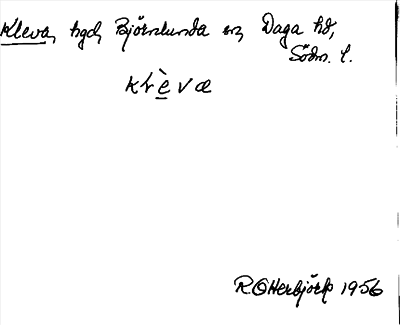 Kleva, hgd, Björnlunda sn, Daga hd,
Södm. l.
klèvæ
R. O Herbjörk 1956